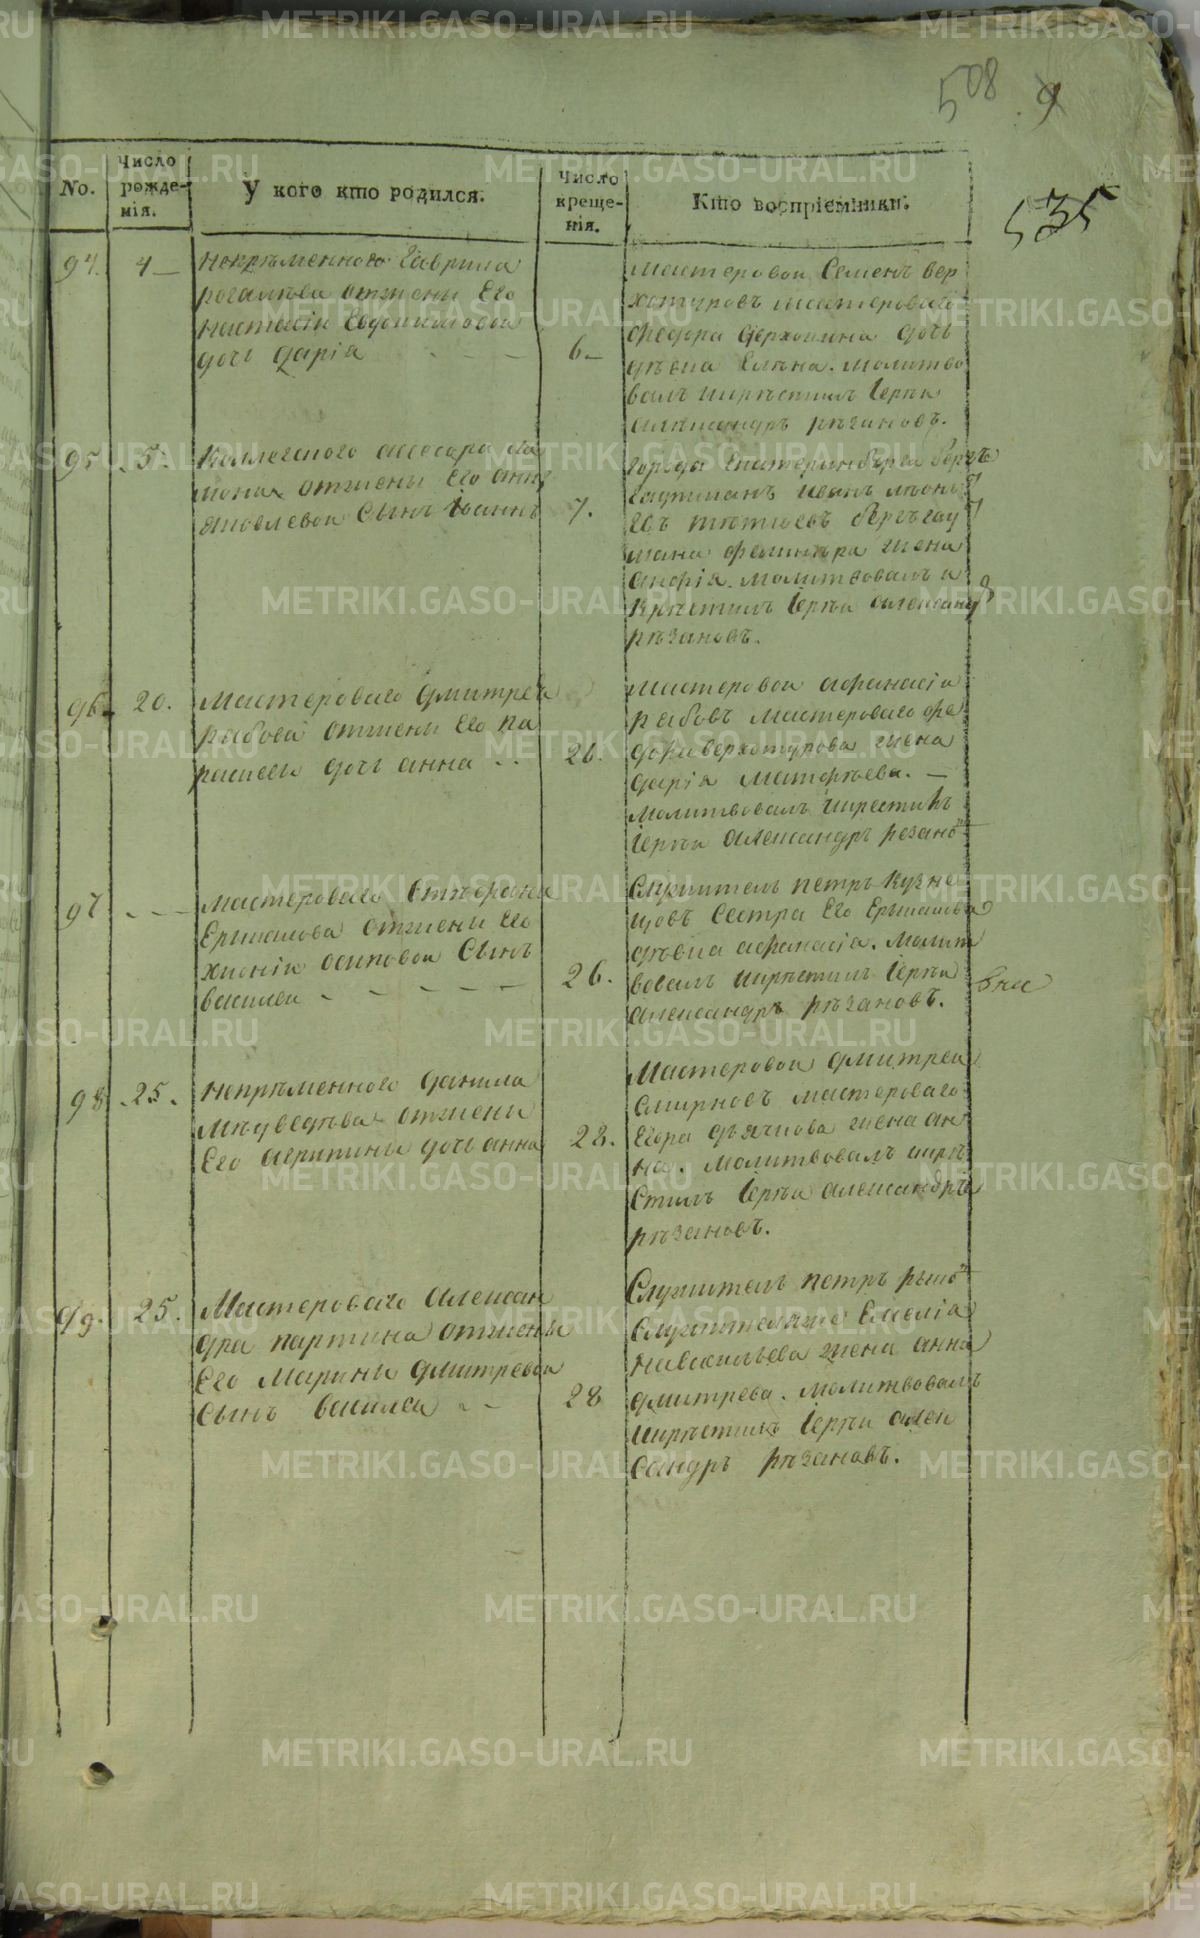 508
9
535
No.
Число рожде-нія.
У кого кто родился.
Число креще-нія.
Кто воспріемники.
94. 4
непремѣнного Гаврила
отжени Его
настасіи
дочь дарія
6
мастеровои Семенъ вер
хотуровъ мастероваго
дочь
дѣвка Елѣна. молитво
валъ икрѣстилъ Іерѣи
александръ рѣзановъ.
95 5.
Коллежского асесора
отжени Его анны
яковлевои Сынъ Іоаннъ
7.
города Екатеринбурга бергъ
гауптманъ иванъ
жена
молитвовалъ и
Крѣстилъ Іерѣи александ
рѣзановъ.
96. 20.
Мастероваго дмитрея
рыбова отжени Его па
расковьи дочь анна
26.
мастеровои афанасіи
рыбовъ мастероваго фе
дора верхотурова жена
дарія Матфѣева.
Молитвовалъ икрестилъ
Іерѣи александръ резановъ
97
мастероваго Стѣфана
отжени Его
хионіи осиповои Сынъ
василеи
26.
Служитель петръ Кузне
цовъ Сестра Его
дѣвка афанасія. молит
вовалъ икрѣстилъ Іерѣи
александръ рѣзановъ.
98 25.
непрѣменного данила
мѣдведѣва отжени
Его агрипины дочь анна
28.
Мастеровои дмитреи
Смирновъ мастероваго
Егора дьячкова жена ан
на. молитвовалъ икрѣ
Стилъ Іерѣи александръ
рѣзановъ.
99. 25.
Мастероваго Алексан
дра партина отжены
Его Марины дмитревои
Сынъ василеи
28
Служитель петръ
Служителя Емелія
жена анна
дмитрева. молитвовалъ
икрѣстилъ Іерѣи алек
Сандръ рѣзановъ.
METRIKI.GASO-URAL.RU